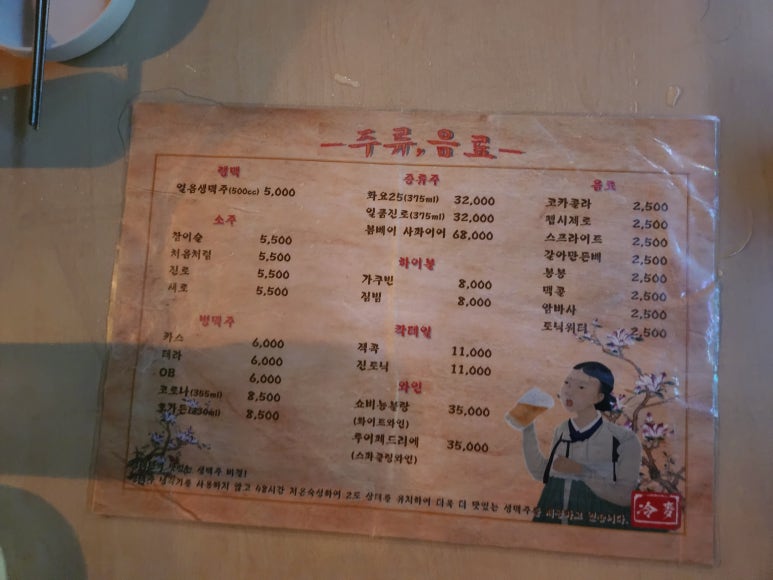 주류,음료
생맥
얼음생맥주(500cc) 5,000
소주
참이슬 5,500
처음처럼 5,500
진로 5,500
새로 5,500
병맥주
카스 6,000
테라 6,000
OB 6,000
코로나(355ml) 8,500
호가든(330ml) 8,500
증류주
화요25(375ml) 32,000
일품진로(375ml) 32,000
봄베이 사파이어 68,000
하이볼
가쿠빈 8,000
짐빔 8,000
칵테일
잭콕 11,000
진토닉 11,000
와인
쇼비뇽블랑 35,000
(화이트와인)
루이페드리에 35,000
(스파클링와인)
음료
코카콜라 2,500
펩시제로 2,500
스프라이트 2,500
갈아만든배 2,500
봉봉 2,500
맥콜 2,500
암바사 2,500
토닉워터 2,500
맛있는 생맥주 비결!
냉각기를 사용하지 않고 48시간 저온숙성하여 2도 상태를 유지하여 더욱 더 맛있는 생맥주를 제공하고 있습니다.
冷麥